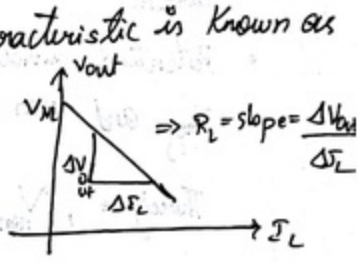 racteristic is Known as
Vout
VM
=> RL = slope = ΔVou
ΔIL
ΔVout
ΔIL
IL